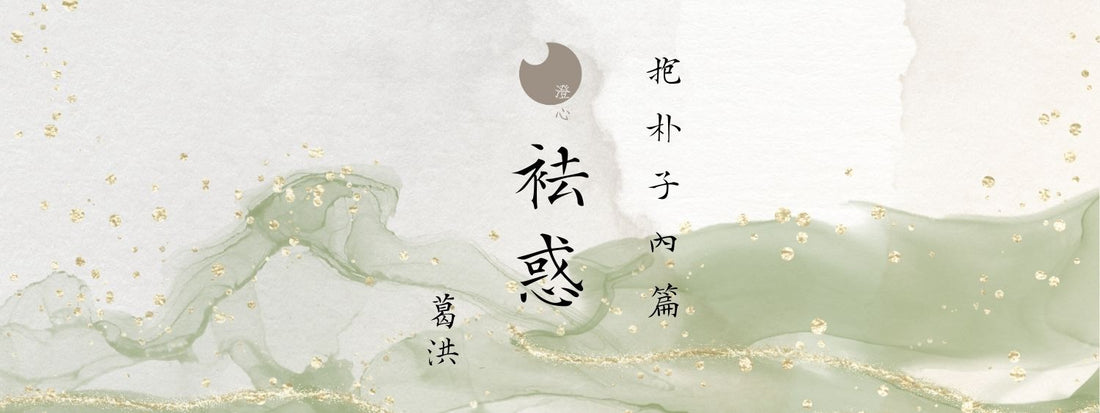 抱朴子內篇
澄心
袪惑
葛洪